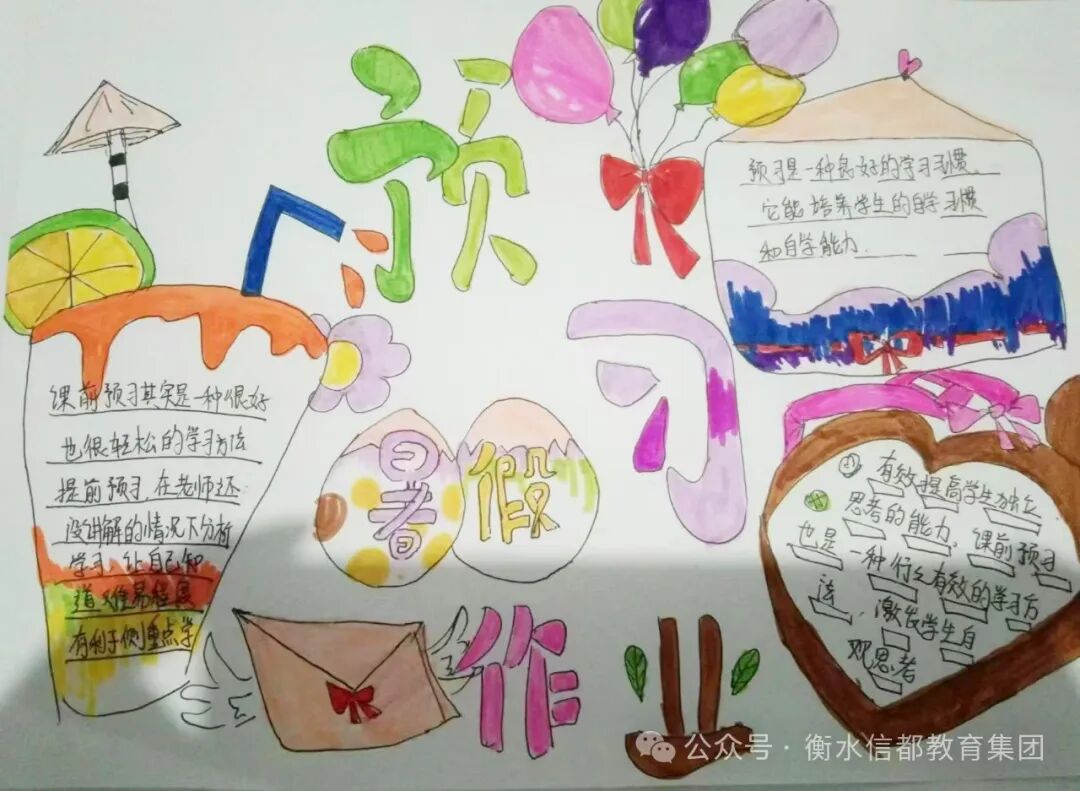 预习
暑假
作业
预习是一种良好的学习习惯、
它能培养学生的自学习惯
和自学能力.
课前预习其实是一种很好
也很轻松的学习方法
提前预习,在老师还
没讲解的情况下分析
学习,让自己知
道难易程度
有利于侧重点学
有效提高学生独立
思考的能力,课前预习
也是一种行之有效的学习方
法,激发学生自
观思考
公众号·衡水信都教育集团